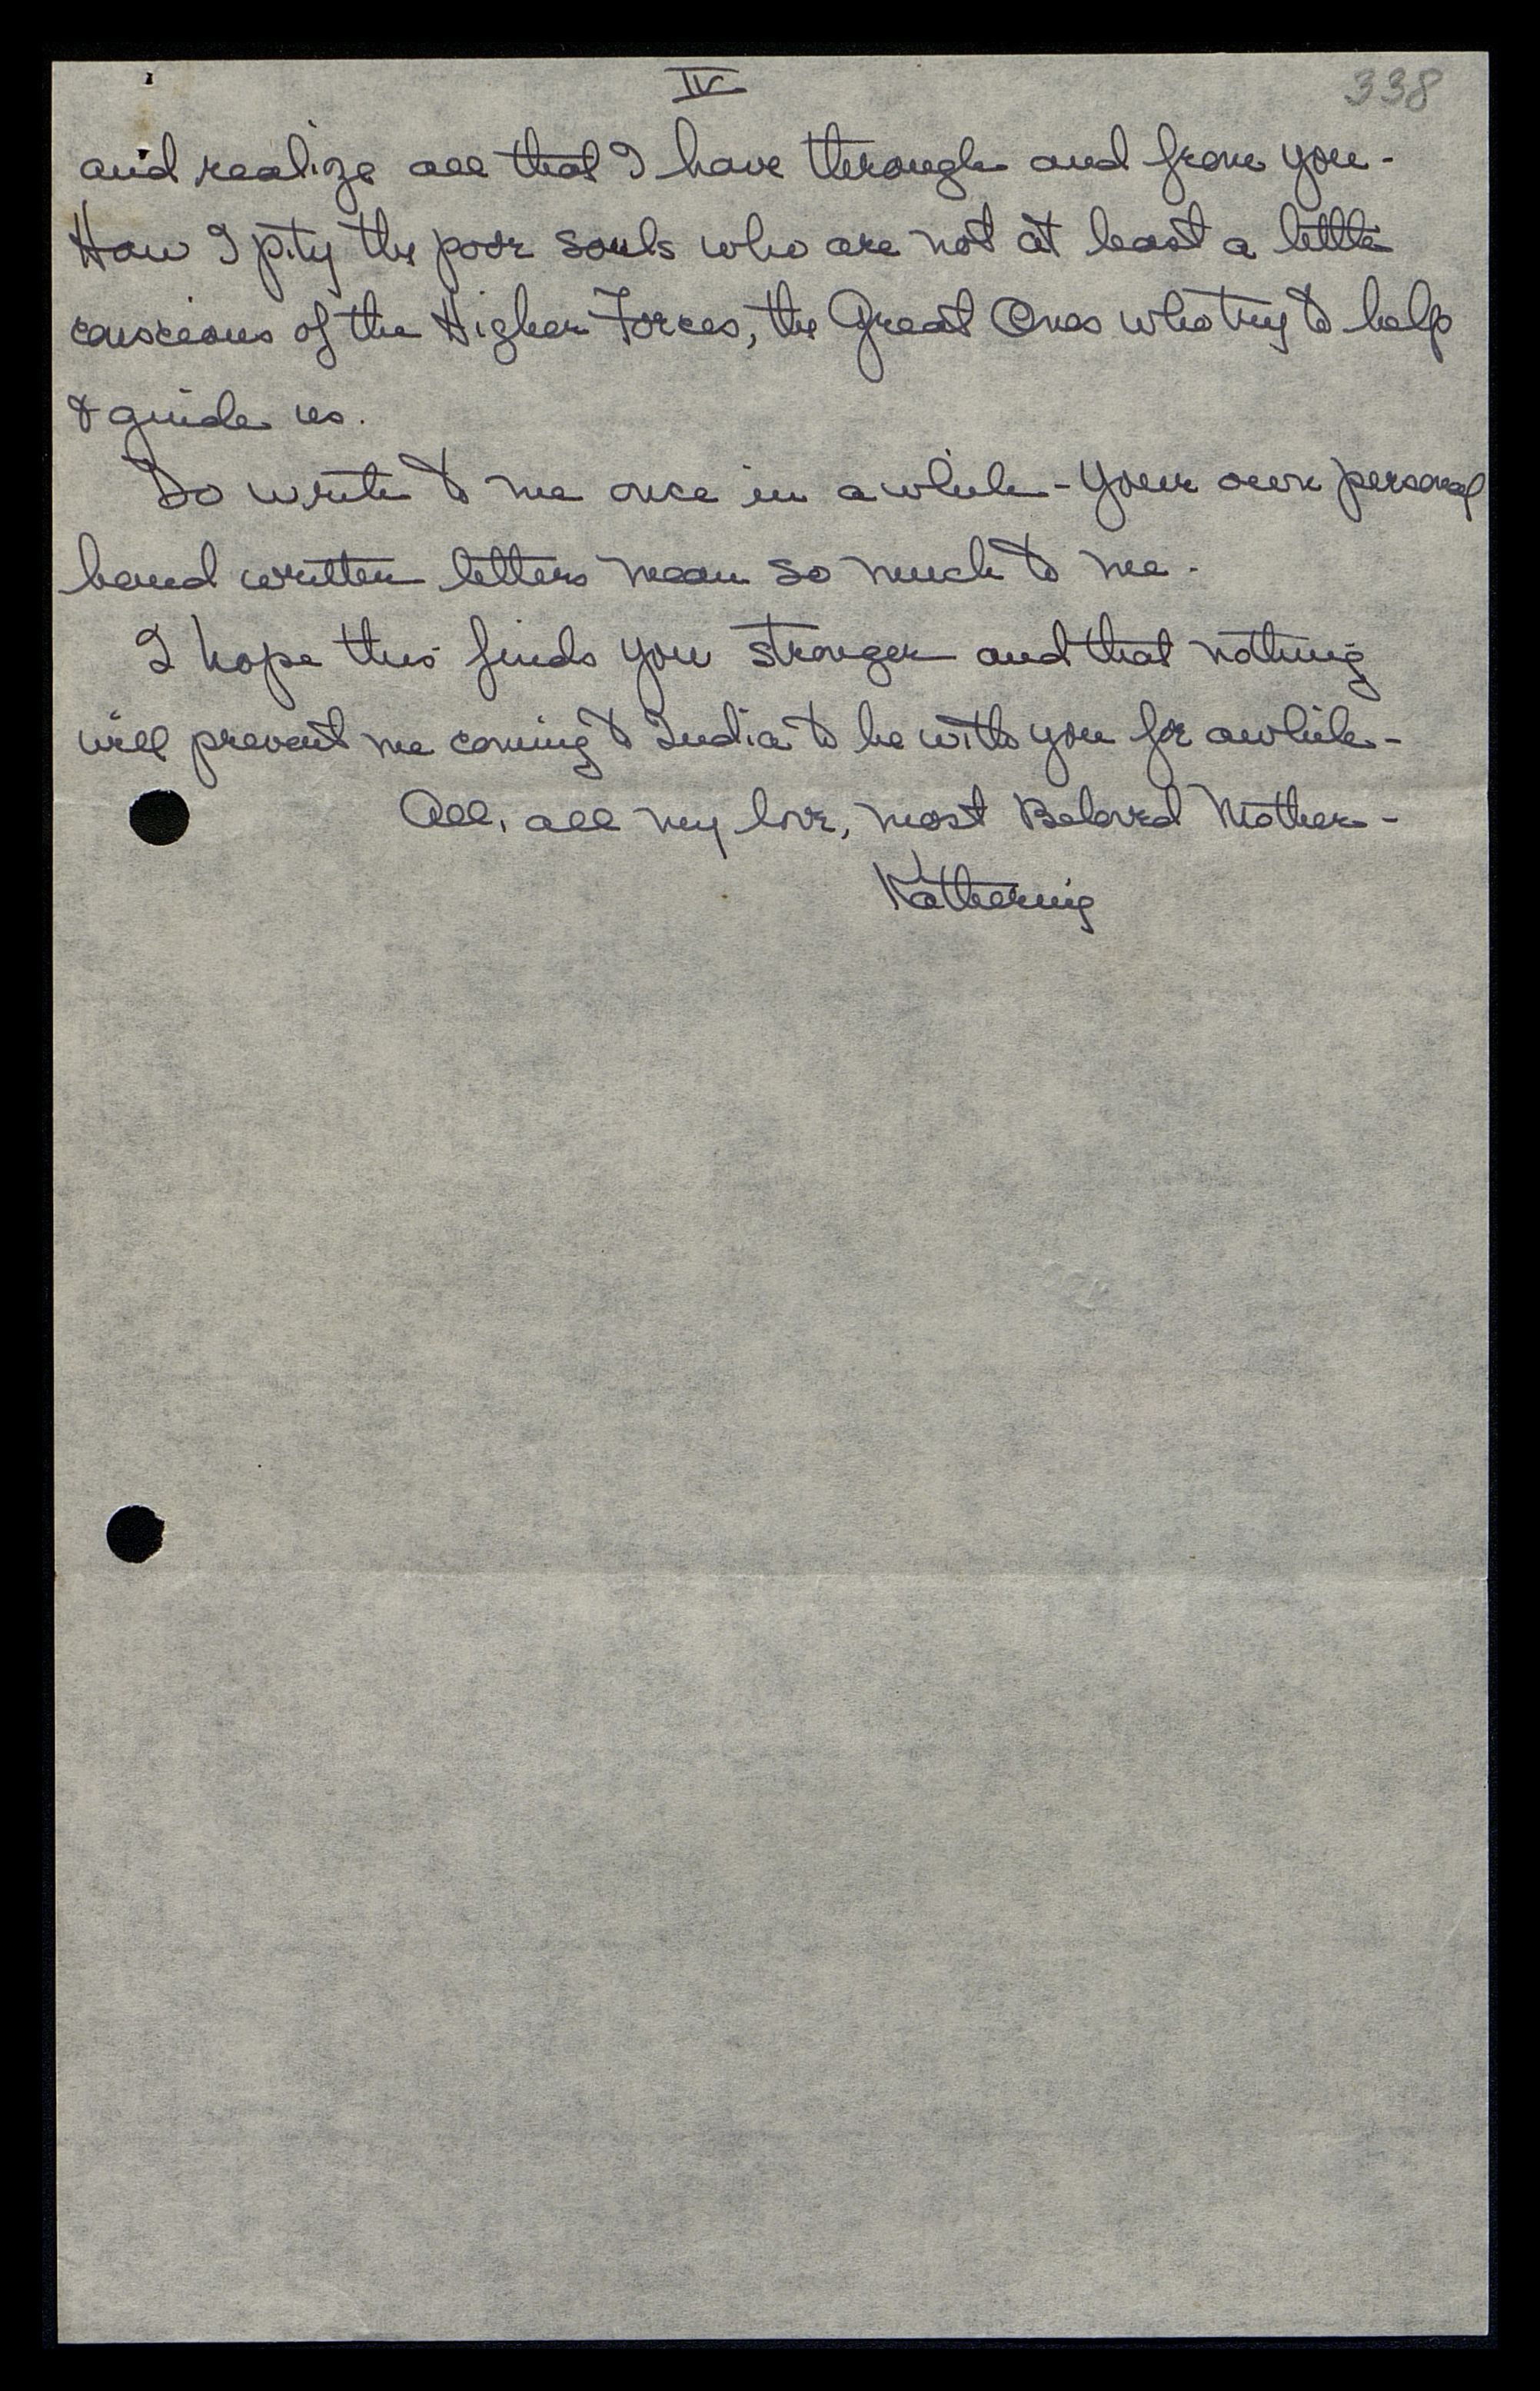 IV
338
and realize all that I have through and from you -
How I pity the poor souls who are not at least a little
conscious of the Higher Forces, the Great Ones who try to help
& guide us.
Do write to me once in awhile - your own personal
hand written letters mean so much to me -
I hope this finds you stronger and that nothing
will prevent me coming to India to be with you for awhile -
All, all my love, most Beloved Mother -
Katherine